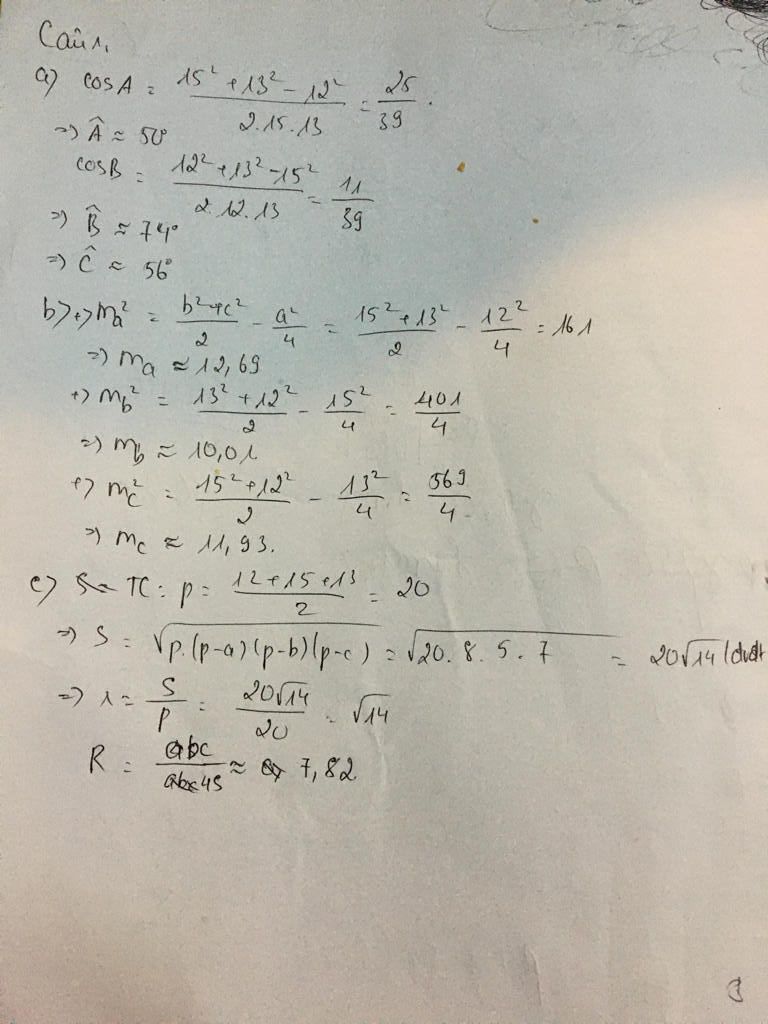 Câu 1.
a) cosA = \frac{15² + 13² - 12²}{2.15.13} = \frac{25}{39}.
=> Â ≈ 50°
cosB = \frac{12² + 13² - 15²}{2.12.13} = \frac{11}{39}
=> B̂ ≈ 74°
=> Ĉ ≈ 56°
b) +) m_a² = \frac{b² + c²}{2} - \frac{a²}{4} = \frac{15² + 13²}{2} - \frac{12²}{4} = 161
=> m_a ≈ 12,69
+) m_b² = \frac{13² + 12²}{2} - \frac{15²}{4} = \frac{401}{4}
=> m_b ≈ 10,01
+) m_c² = \frac{15² + 12²}{2} - \frac{13²}{4} = \frac{569}{4}
=> m_c ≈ 11,93.
c) TC: p = \frac{12 + 15 + 13}{2} = 20
=> S = √(p.(p-a)(p-b)(p-c)) = √(20.8.5.7) = 20√14 (đvdt
=> r = \frac{S}{p} = \frac{20√14}{20} = √14
R = \frac{abc}{4S} ≈ 7,82